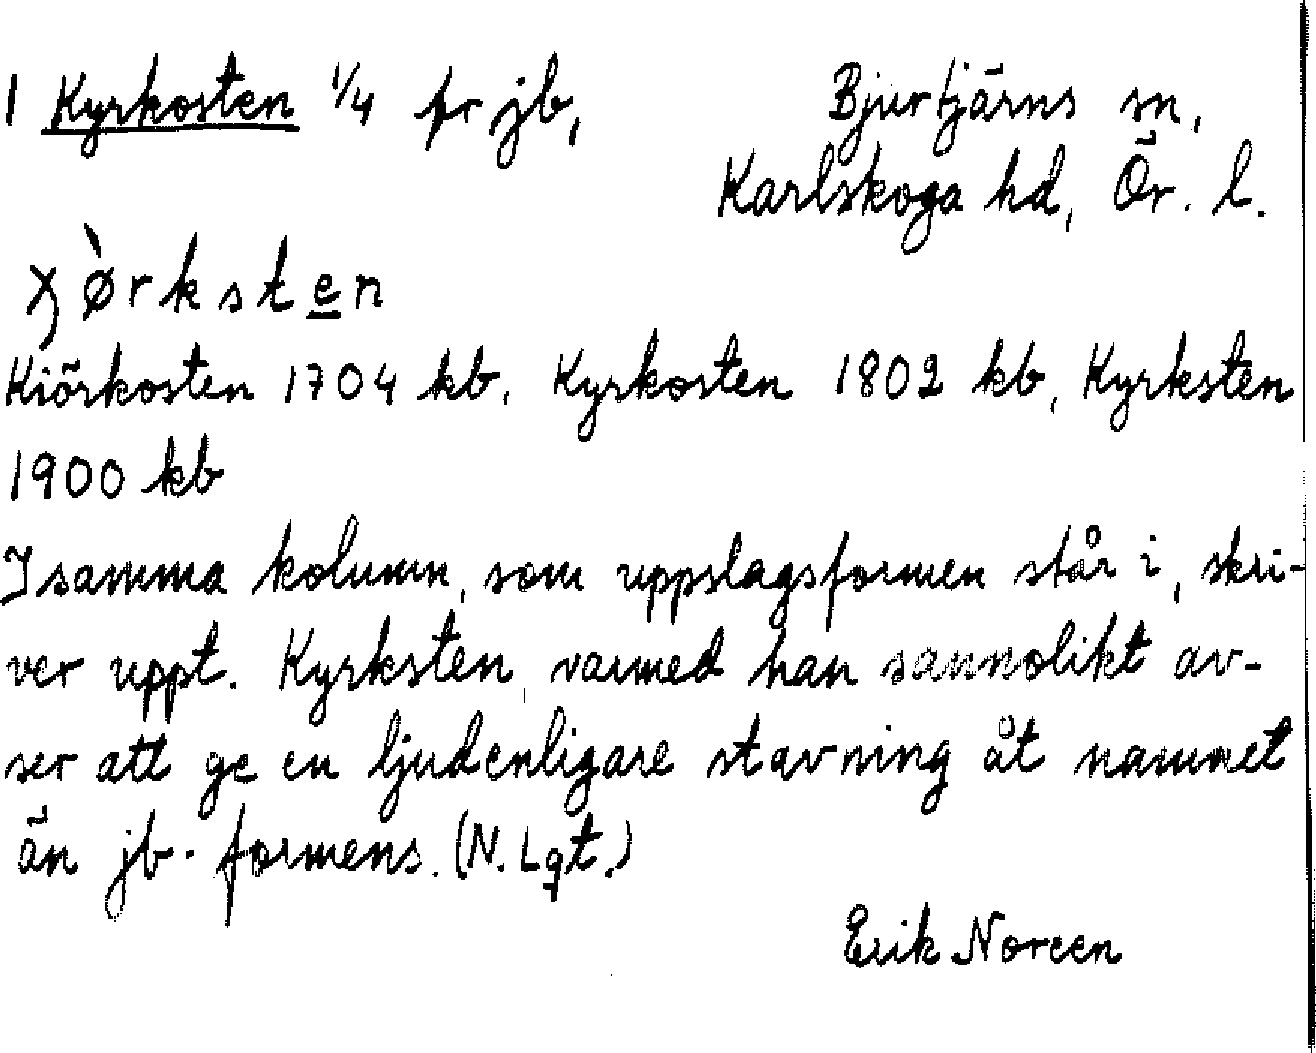 1 Kyrkosten 1/4 fr jb, Bjurtjärns sn,
Karlskoga hd, Ör. l.
χø̀rkste̲n
Kiörkosten 1704 kb. Kyrkosten 1802 kb, Kyrksten
1900 kb
I samma kolumn, som uppslagsformen står i, skri-
ver uppt. Kyrksten, varmed han sannolikt av-
ser att ge en ljudenligare stavning åt namnet
än jb.-formens. (N. Lgt.)
Erik Noreen